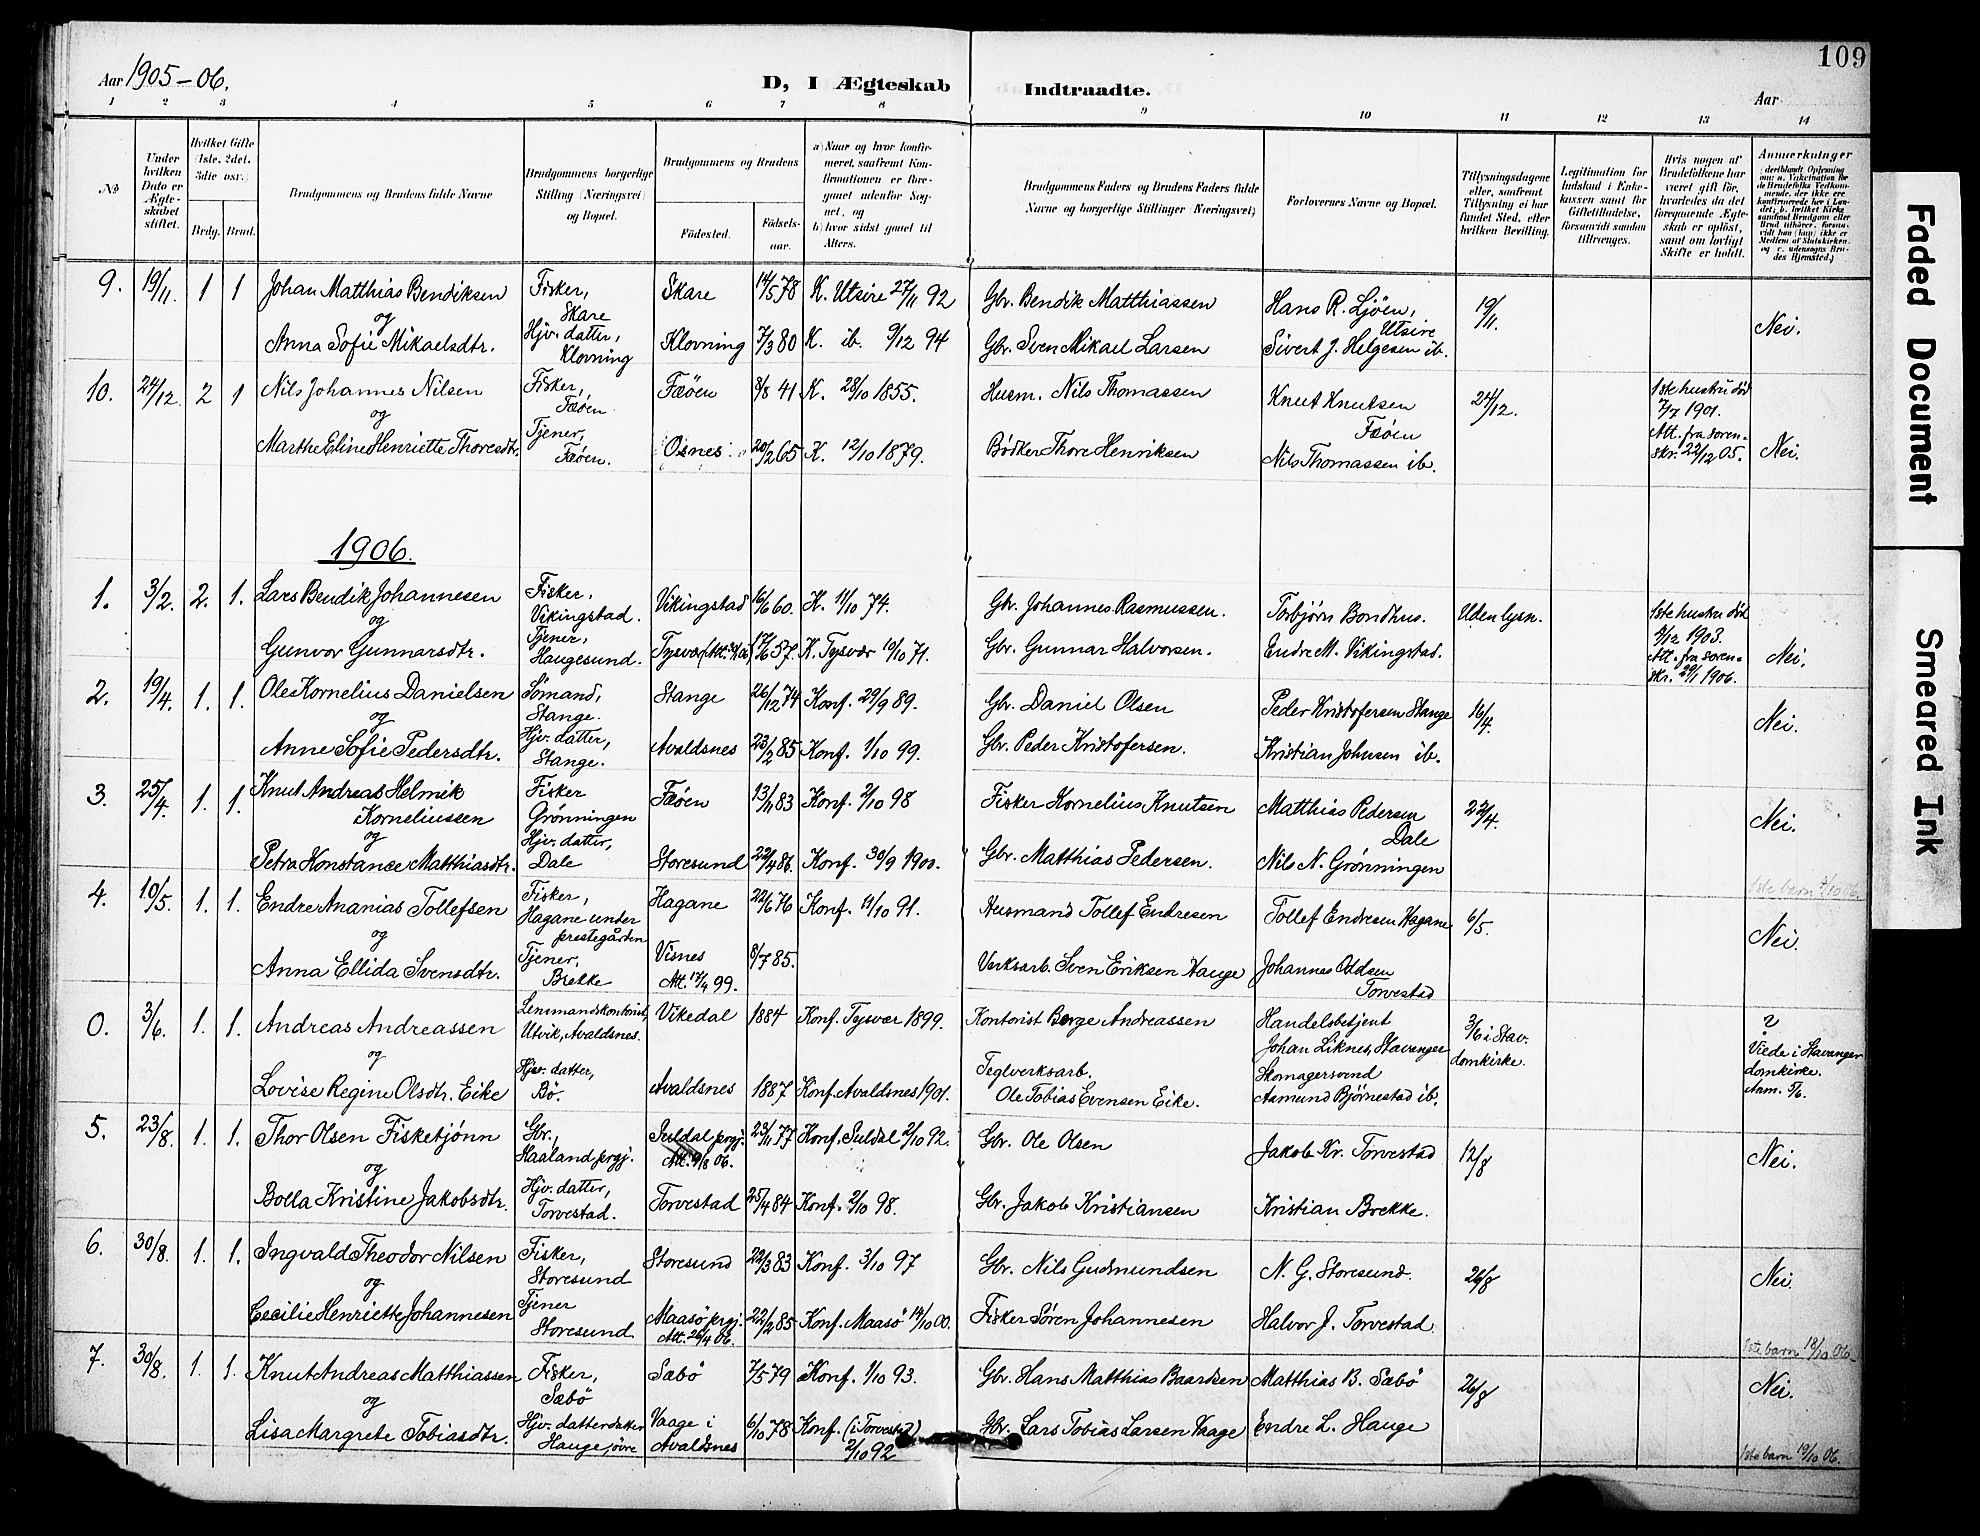 109
Aar 1905-06.
D, I Ægteskab Indtraadte.
Aar
1 2 3 4 5 6 7 8 9 10 11 12 13 14
No
Under hvilken Dato er Ægteskabet stiftet.
Hvilket Gifte (1ste, 2det, 3die osv.)
Brdg. Brud.
Brudgommens og Brudens fulde Navne
Brudgommens borgerlige Stilling (Næringsvei) og Bopæl.
Brudgommens og Brudens
Fødested. Fødsels-aar.
a) Naar og hvor konfirmeret, saafremt Konfirmationen er foregaaet udenfor Sognet, og
b) hvor sidst gaaet til Alters.
Brudgommens Faders og Brudens Faders fulde Navne og borgerlige Stillinger (Næringsvei)
Forlovernes Navne og Bopæl.
Tillysningsdagene eller, saafremt Tillysning ei har fundet Sted, efter hvilken Bevilling.
Legitimation for Indskud i Enkekassen samt for Giftetilladelse, forsaavidt saadan tiltrænges.
Hvis nogen af Brudefolkene har været gift før, hvorledes da det foregaaende Ægteskab er opløst, samt om lovligt Skifte er holdt.
Anmærkninger
9. 19/11. 1 1 Johan Matthias Bendiksen Fisker, Skare Skare 14/5 78 K. Utsire 27/11 92 Gbr. Bendik Matthiassen Hans R. Ljöen, Utsire 19/11.
og
Anna Sofie Mikaelsdtr. Hjv. datter, Klovning Klovning 7/3 80 K. ib. 9/12 94 Gbr. Sven Mikael Larsen Sivert J. Helgesen ib. Nei.
10. 24/12. 2 1 Nils Johannes Nilsen Fisker, Fæöen Fæöen 8/8 41 K. 28/10 1855. Husm. Nils Thomassen Knut Knutsen Fæöen 24/12. 1ste hustru död 7/7 1901.
og
Marthe Eline Henriette Thoresdtr. Tjener, Fæöen. Osnes 20/2 65 K. 12/10 1879. Bödker Thore Henriksen Nils Thomassen ib. Att. fra sorenskr. 22/12 05. Nei.
1906.
1. 3/2. 2. 1. Lars Bendik Johannesen Fisker, Vikingstad. Vikingstad 16/6 60. K. 11/10 74. Gbr. Johannes Rasmussen. Torbjörn Bondhus. Uden lysn. 1ste hustru död 9/12 1903.
og
Gunvor Gunnarsdtr. Tjener, Haugesund. Tysvær 17/6 57. K. Tysvær 10/10 71. Gbr. Gunnar Halvorsen. Endre M. Vikingstad. Att. fra sorenskr. 29/1 1906. Nei.
2. 19/4. 1. 1. Ole Kornelius Danielsen Sömand, Stange. Stange 26/12 74 Konf. 29/9 89. Gbr. Daniel Olsen Peder Kristofersen Stange 16/4. Nei.
og
Anne Sofie Pedersdtr. Hjv. datter, Stange. Avaldsnes 23/2 85 Konf. 1/10 99. Gbr. Peder Kristofersen. Kristian Johnsen ib.
3. 25/4. 1. 1. Knut Andreas Helmik Korneliussen Fisker Grönningen Fæöen 13/11 83 Konf. 2/10 98 Fisker Kornelius Knutsen Matthias Pedersen Dale 22/4. Nei.
og
Petra Konstance Matthiasdtr. Hjv. datter, Dale Storesund 22/4 86. Konf. 30/9 1900. Gbr. Matthias Pedersen. Nils N. Grönningen
1ste barn 4/10 06.
4. 10/5. 1. 1. Endre Ananias Tollefsen Fisker, Hagane under prestegården Hagane 22/6 76 Konf. 11/10 91. Husmand Tollef Endresen Tollef Endresen Hagane 6/5. Nei.
og
Anna Ellida Svensdtr. Tjener, Brekke Visnes Att. 17/4 99. 8/7 85. Verksarb. Sven Eriksen Hauge Johannes Oddsen Torvestad
0. 3/6. 1. 1. Andreas Andreassen Lensmandskontorist, Utvik, Avaldsnes. Vikedal 1884 Konf. Tysvær 1899. Kontorist Berge Andreassen Handelsbetjent Johan Liknes, Stavanger 3/6 i Stav. domkirke.
og
Lovise Regine Olsdtr. Eike Hjv. datter, Bö. Avaldsnes 1887 Konf. Avaldsnes 1901. Teglverksarb. Ole Tobias Evensen Eike. Skomagersvend Aamund Bjørnestad ib. ? Viede i Stavanger domkirke. Anm. 5/6.
5. 23/8. 1. 1. Thor Olsen Fisketjönn Gbr., Haaland prgj. Suldal prgj. Att. 9/8 06. 23/11 77 Konf. Suldal 2/10 92. Gbr. Ole Olsen Jakob Kr. Torvestad 12/8 Nei.
og
Bolla Kristine Jakobsdtr. Hjv. datter, Torvestad. Torvestad 25/4 84 Konf. 2/10 98. Gbr. Jakob Kristiansen Kristian Brekke.
6. 30/8. 1. 1. Ingvald Theodor Nilsen Fisker, Storesund Storesund 22/3 83 Konf. 3/10 97 Gbr. Nils Gudmundsen N. G. Storesund. 26/8 Nei.
og
Cecilie Henriette Johannesen Tjener Storesund Maasö prgj. Att. 25/4 06. 22/2 85 Konf. Maasö 14/10 00. Fisker Sören Johannesen Halvor J. Torvestad.
1ste barn 18/10 06.
7. 30/8. 1. 1. Knut Andreas Matthiassen Fisker, Sæbö Sæbö 7/5 79 Konf. 1/10 93. Gbr. Hans Matthias Baardsen Matthias B. Sæbö 26/8 Nei.
og
Lisa Margrete Tobiasdtr. Hjv. datterdatter Hauge, övre Vaage i Avaldsnes 6/10 78 Konf. (i Torvestad) 2/10 92 Gbr. Lars Tobias Larsen Vaage Endre L. Hauge
1ste barn 19/10 06.
Faded Document
Smeared Ink